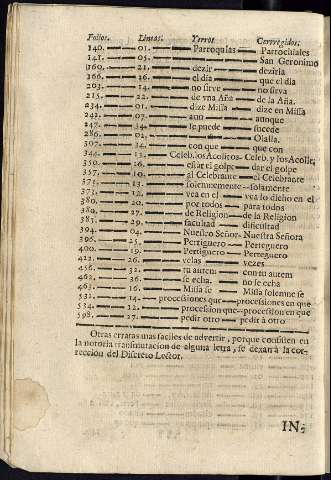 Folios. Lineas. Yerros Corregidos.
140. 01. Parroquias Parrochiales
141. 05. San Geronimo
160. 21. dezir deziria
166. 16. el dia que el dia
203. 14. no sirve no sirva
215. 12. de vna Aña de la Aña.
234. 01. dize Missa dize en Missa
242. 07. aun aunque
247. 14. se puede sucede
286. 02. Olalla.
307. 34. con que que con
344. 13. Celeb. los Acolitos Celeb. y los Acolit.
350. 16. estar el golpe dar el golpe
357. 10. al Celebrante el Celebrante
371. 13. solemnemente solamente
373. 12. vea en el vea lo dicho en el
380. 20. por todos para todos
380. 27. de Religion de la Religion
389. 29. facultad dificultad
394. 04. Nuestro Señor Nuestra Señora
396. 25. Pertiguero Perteguero
400. 19. Pertiguero Perteguero
422. 26. velas vezes
456. 32. tu autem con tu autem
462. 36. se echa. no se echa
463. 16. Missa se Missa solemne se
532. 14. processiones que processiones en que
534. 12. procession que procession en que
598. 27. pedir otro pedir à otro
Otras erratas mas faciles de advertir, porque consisten en
la notoria transmutacion de alguna letra, se dexan à la cor-
reccion del Discreto Lector.
IN-